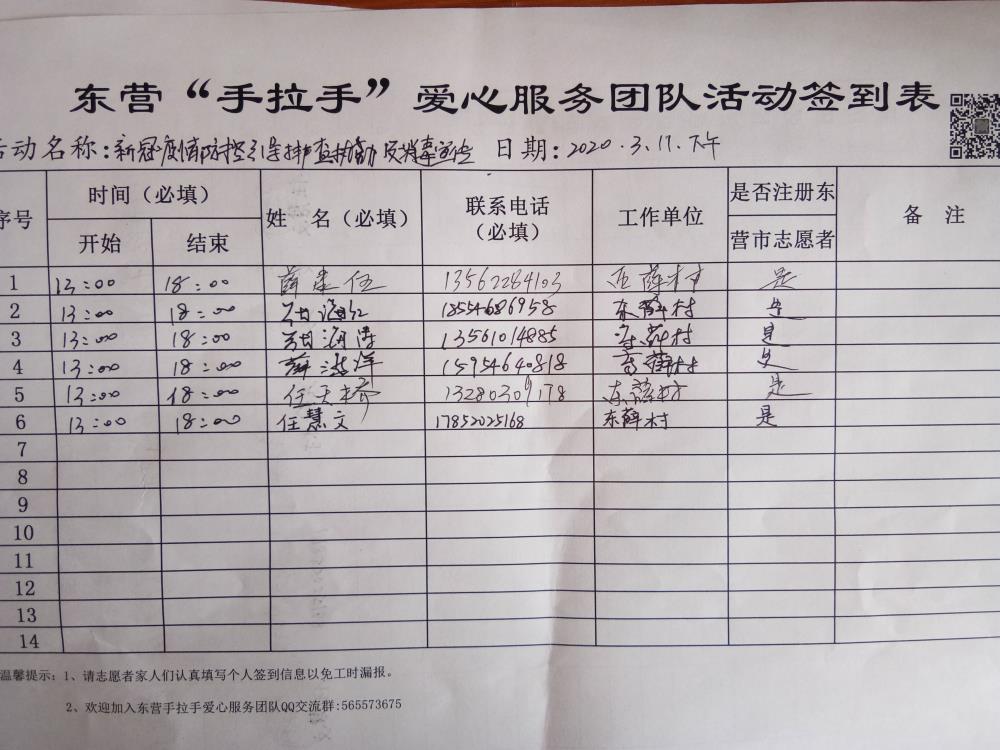 东营“手拉手”爱心服务团队活动签到表
活动名称:新冠疫情防控 排查 日期:2020.3.17.下午
序号 时间(必填) 姓 名(必填) 联系电话(必填) 工作单位 是否注册东营市志愿者 备 注
开始 结束
1 13:00 18:00 薛 伍 13562284103 西薛村 是
2 13:00 18:00 海红 18554686958 东薛村 是
3 13:00 18:00 海涛 13561014885 薛村 是
4 13:00 18:00 薛 洋 15954640818 薛村 是
5 13:00 18:00 任天桥 13280309178 东薛村 是
6 13:00 18:00 任慧文 17852025168 东薛村 是
7
8
9
10
11
12
13
14
温馨提示:1、请志愿者家人们认真填写个人签到信息以免工时漏报。
2、欢迎加入东营手拉手爱心服务团队QQ交流群:565573675